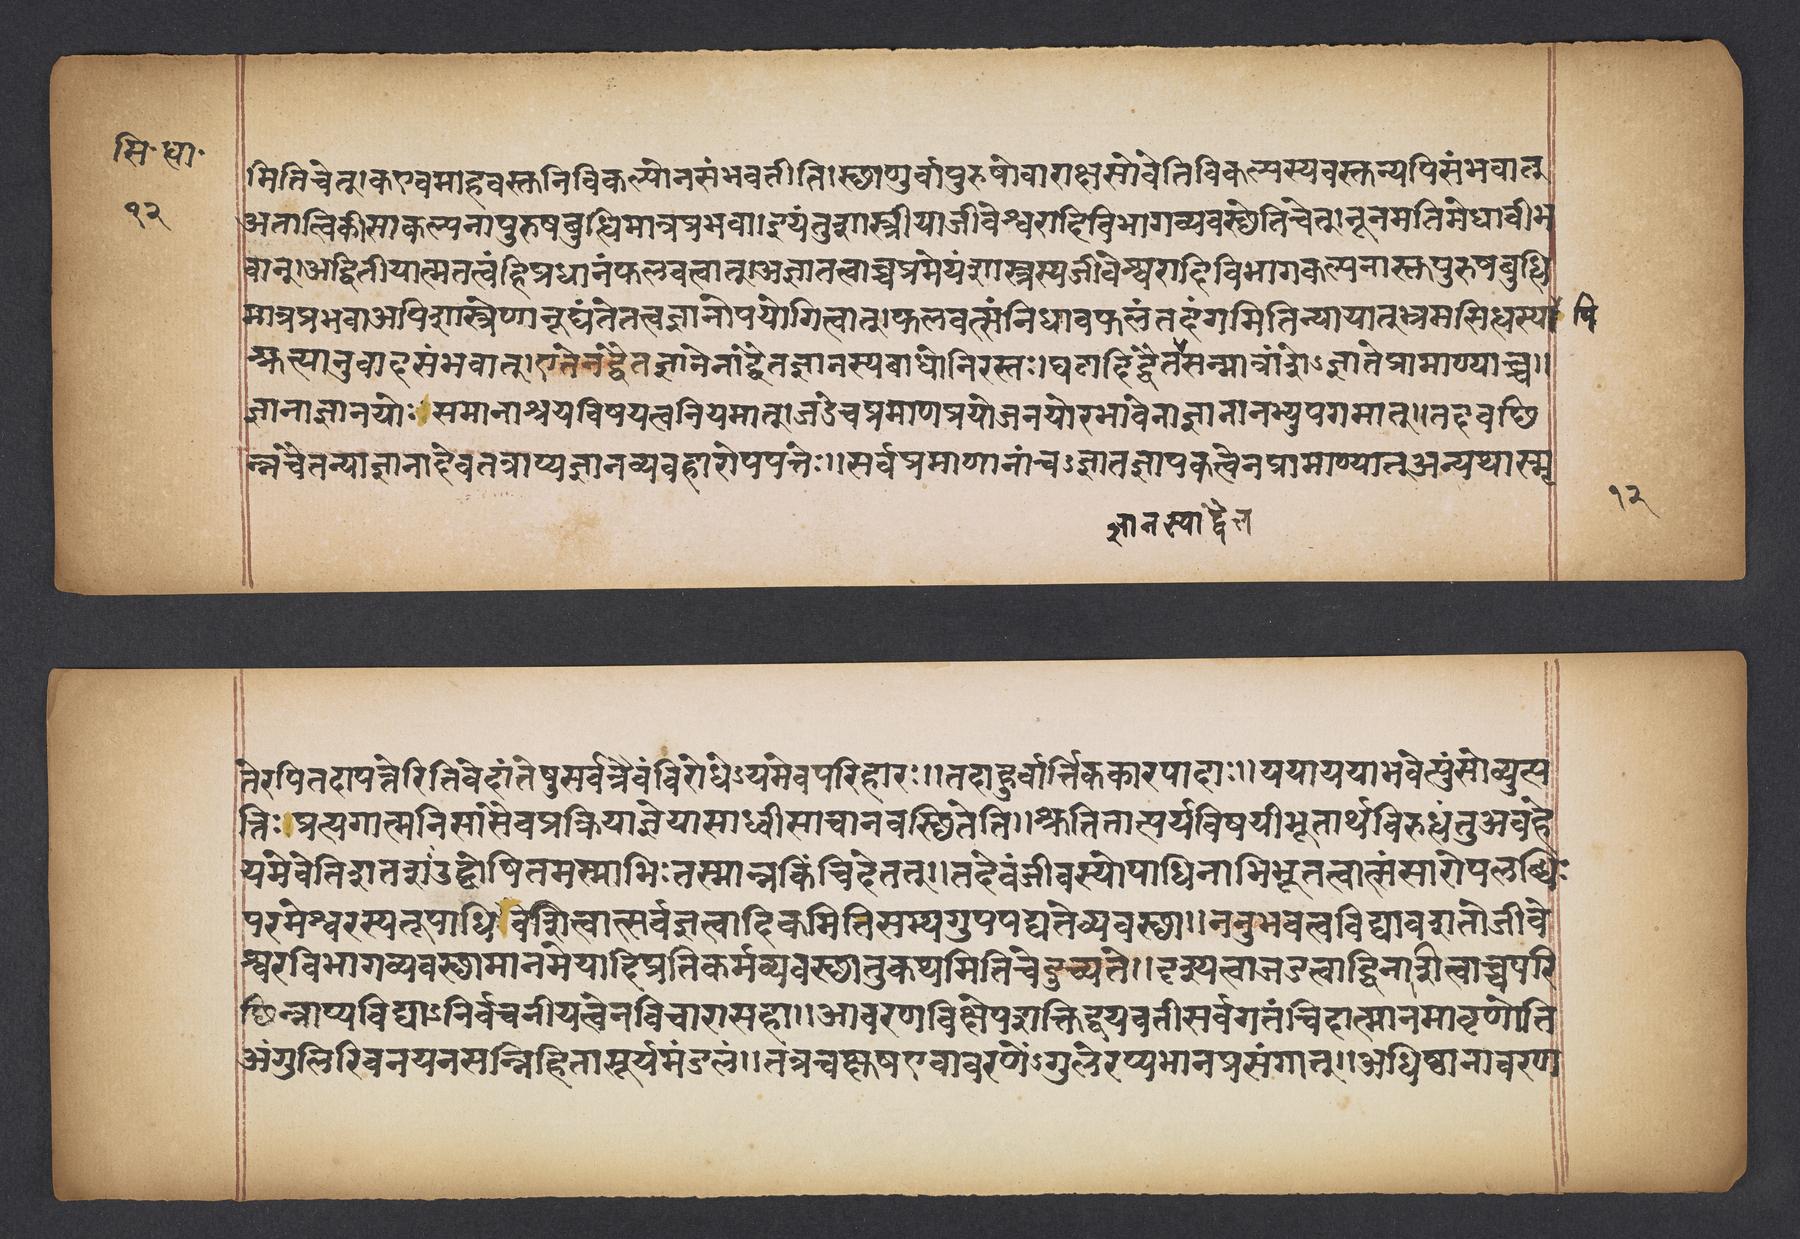 सि॰ धा॰
१२
मितिचेत्।कएवमाहवस्तुनिविकल्पोनसंभवतीति।स्थाणुर्वापुरुषोवाराक्षसोवेतिविकल्पस्यवस्तुन्यपिसंभवात्
अतात्विकीसाकल्पनापुरुषबुद्धिमात्रप्रभवा।इयंतुशास्त्रीयाजीवेश्वरादिविभागव्यवस्थेतिचेत्।नूनमतिमेधावीभ
वान्।अद्वितीयात्मतत्वंहिप्रधानंफलवत्वात्।अज्ञातत्वाच्चप्रमेयंशास्त्रस्यजीवेश्वरादिविभागकल्पनास्तुपुरुषबुद्धि
मात्रप्रभवाअपिशास्त्रेणानूद्यंतेतत्वज्ञानोपयोगित्वात्।फलवत्संनिधावफलंतदंगमितिन्यायात्भ्रमसिद्धस्या पि
श्रुत्यानुवादसंभवात्।एतेनद्वैतज्ञानेनाद्वैतज्ञानस्यबाधोनिरस्तः।घटादिद्वैतसन्मात्रांशेऽज्ञातेप्रामाण्याच्च॥
ज्ञानाज्ञानयोःसमानाश्रयविषयत्वनियमात्।जडेचप्रमाणप्रयोजनयोरभावेनाज्ञानानभ्युपगमात्॥तदवछि
न्नचैतन्याज्ञानादेवतत्राप्यज्ञानव्यवहारोपपत्तेः॥सर्वप्रमाणानांचऽज्ञातज्ञापकत्वेनप्रामाण्यात्अन्यथास्मृ
ज्ञानस्याद्वैत
१२
तेरपितदापत्तेरितिवेदांतेषुसर्वत्रैवंविरोधेऽयमेवपरिहारः॥तदाहुर्वार्त्तिककारपादाः॥ययाययाभवेत्पुंसोव्युत्प
त्तिःप्रत्यगात्मनिसासैवप्रक्रियाज्ञेयासाध्वीसाचानवस्थितेति॥श्रुतितात्पर्यविषयीभूतार्थविरुद्धंतुअवहे
यमेवेतिशतशउद्घोषितमस्माभिःतस्मान्नकिंचिदेतत्॥तदेवंजीवस्योपाधिनाभिभूतत्वात्संसारोपलब्धिः
परमेश्वरस्यतूपाधिवशित्वात्सर्वज्ञत्वादिकमितिसम्यगुपपद्यतेव्यवस्था॥ननुभवत्वविद्यावशतोजीवे
श्वरविभागव्यवस्थामानमेयादिप्रतिकर्मव्यवस्थातुकथमितिचेदुच्यते॥दृश्यत्वाज्जडत्वाद्विनाशीत्वाच्चपरि
छिन्नाप्यविद्याऽनिर्वचनीयत्वेनविचारासहा॥आवरणविक्षेपशक्तिद्वयवतीसर्वगतंचिदात्मानमावृणोति
अंगुलिरिवनयनसन्निहितासूर्यमंडलं॥तत्रचक्षुषएवावरणेंऽगुलेरप्यभानप्रसंगात्॥अधिष्ठानावरण